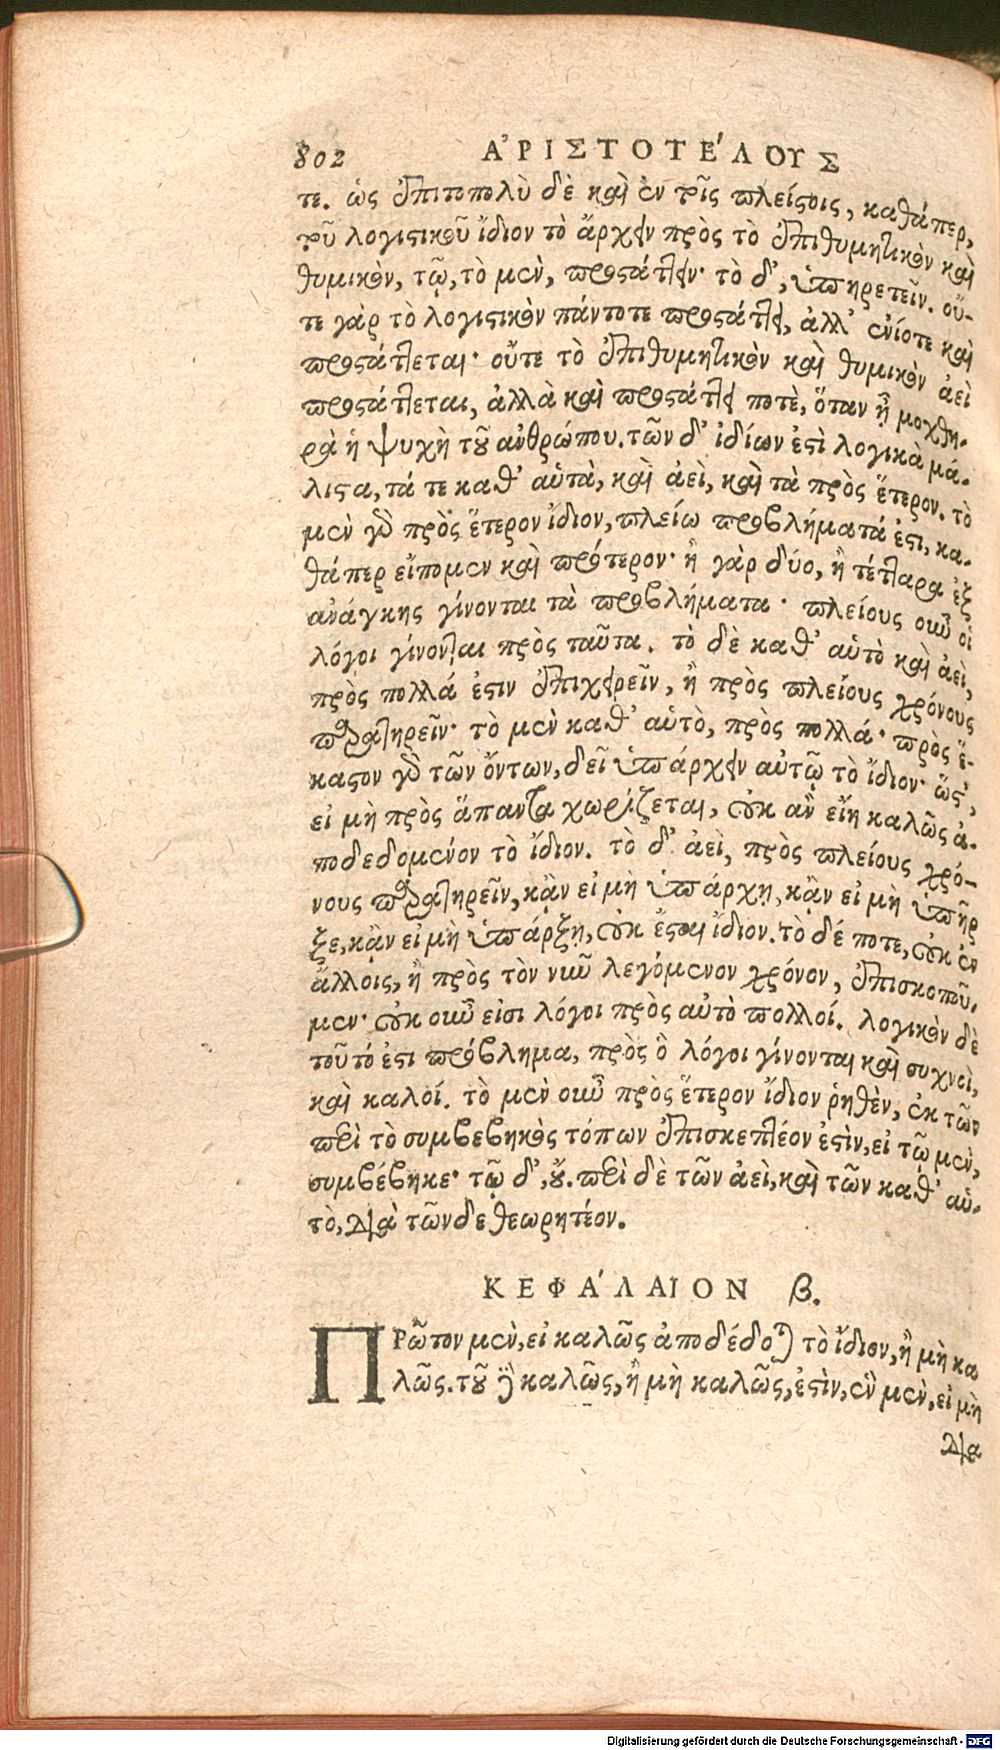 802 ΑʼΡΙΣΤΟΤΕΛΟΥΣ
τε. ὡς ἐπιτοπολὺ δὲ καὶ ἐν τοῖς πλείστοις, καθάπερ,
τοῦ λογιστικοῦ ἴδιον τὸ ἄρχειν πρὸς τὸ ἐπιθυμητικὸν καὶ
θυμικὸν, τῷ, τὸ μὲν, προστάττειν· τὸ δ’, ὑπηρετεῖν. οὔ-
τε γὰρ τὸ λογιστικὸν πάντοτε προστάττει, ἀλλ’ ἐνίοτε καὶ
προστάττεται· οὔτε τὸ ἐπιθυμητικὸν καὶ θυμικὸν ἀεὶ
προστάττεται, ἀλλὰ καὶ προστάττει ποτὲ, ὅταν ᾖ μοχθη-
ρὰ ἡ ψυχὴ τοῦ ἀνθρώπου. τῶν δ’ ἰδίων ἐστὶ λογικὰ μά-
λιστα, τά τε καθ’ αὑτὰ, καὶ ἀεὶ, καὶ τὰ πρὸς ἕτερον. τὸ
μὲν γὰρ πρὸς ἕτερον ἴδιον, πλείω προβλήματά ἐστι, κα-
θάπερ εἴπομεν καὶ πρότερον· ἢ γὰρ δύο, ἢ τέτταρα ἐξ
ἀνάγκης γίνονται τὰ προβλήματα· πλείους οὖν οἱ
λόγοι γίνονται πρὸς ταῦτα. τὸ δὲ καθ’ αὑτὸ καὶ ἀεὶ,
πρὸς πολλά ἐστιν ἐπιχειρεῖν, ἢ πρὸς πλείους χρόνους
παρατηρεῖν· τὸ μὲν καθ’ αὑτὸ, πρὸς πολλά· πρὸς ἕ-
καστον γὰρ τῶν ὄντων, δεῖ ὑπάρχειν αὐτῷ τὸ ἴδιον· ὥστ’,
εἰ μὴ πρὸς ἅπαντα χωρίζεται, οὐκ ἂν εἴη καλῶς ἀ-
ποδεδομένον τὸ ἴδιον. τὸ δ’ ἀεὶ, πρὸς πλείους χρό-
νους παρατηρεῖν, κᾂν εἰ μὴ ὑπάρχῃ, κᾂν εἰ μὴ ὑπῆρ
ξε, κᾂν εἰ μὴ ὑπάρξῃ, οὐκ ἔσται ἴδιον. τὸ δέ ποτε, οὐκ ἐν
ἄλλοις, ἢ πρὸς τὸν νῦν λεγόμενον χρόνον, ἐπισκοποῦ-
μεν· οὐκ οὖν εἰσι λόγοι πρὸς αὐτὸ πολλοί. λογικὸν δὲ
τοῦτό ἐστι πρόβλημα, πρὸς ὃ λόγοι γίνονται καὶ συχνοὶ,
καὶ καλοί. τὸ μὲν οὖν πρὸς ἕτερον ἴδιον ῥηθὲν, ἐκ τῶν
περὶ τὸ συμβεβηκὸς τόπων ἐπισκεπτέον ἐστὶν, εἰ τῷ μὲν,
συμβέβηκε· τῷ δ’, οὔ. περὶ δὲ τῶν ἀεὶ, καὶ τῶν καθ’ αὑ-
τὸ, διὰ τῶνδε θεωρητέον.
ΚΕΦΑʹΛΑΙΟΝ β.
ΠΡῶτον μὲν, εἰ καλῶς ἀποδέδοται τὸ ἴδιον, ἢ μὴ κα
λῶς. τοῦ δὲ καλῶς, ἢ μὴ καλῶς, ἐστὶν, ἓν μὲν, εἰ μὴ
δια
Digitalisierung gefördert durch die Deutsche Forschungsgemeinschaft - DFG